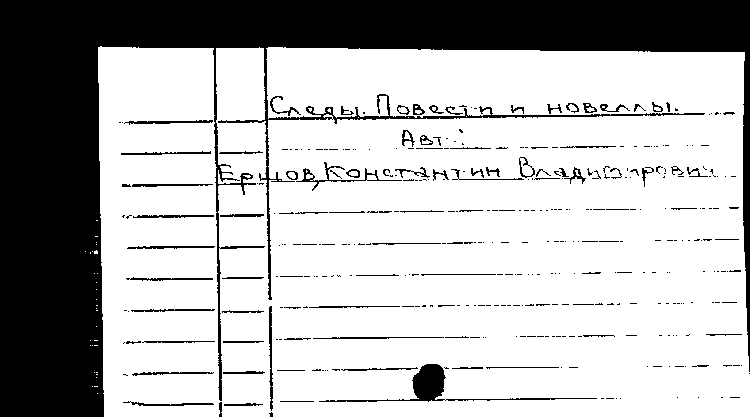 Следы. Повести и новеллы.
Авт.:
Ершов, Константин Владимирович